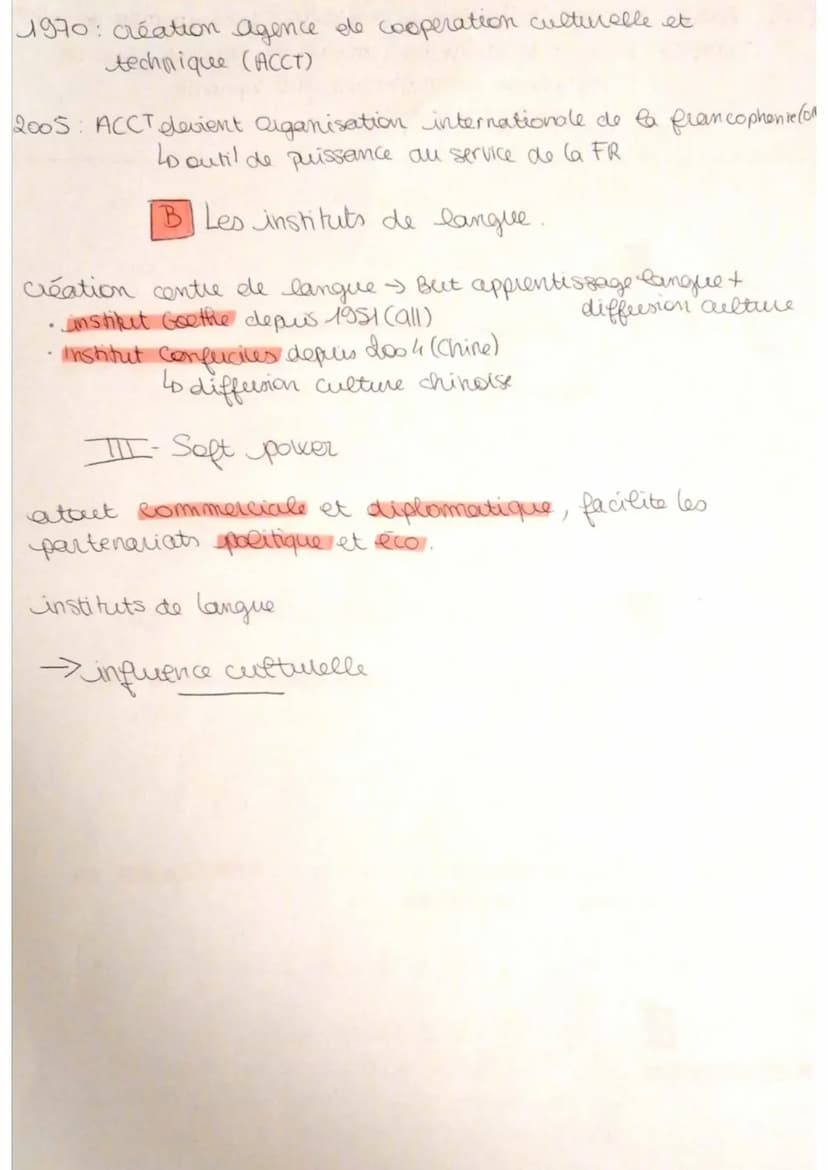 1970 : création agence de cooperation culturelle et
technique (ACCT)
2005 : ACCT devient organisation internationale de la francophonie (OI
↳ outil de puissance au service de la FR
B Les instituts de langue.
création centre de langue → But apprentissage langue +
diffusion culture
· institut Goethe depuis 1951 (all)
· Institut Confucius depuis 2004 (Chine)
↳ diffusion culture chinoise
III - Soft power
atout commerciale et diplomatique, facilite les
partenariats politique et éco.
instituts de langue
→ influence culturelle